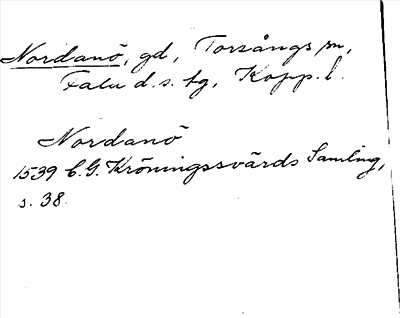 Nordanö, gd, Torsångs sn,
Falu d.s. tg, Kopp. l.
Nordanö
1539 C.G. Kröningssvärds Samling,
s. 38.